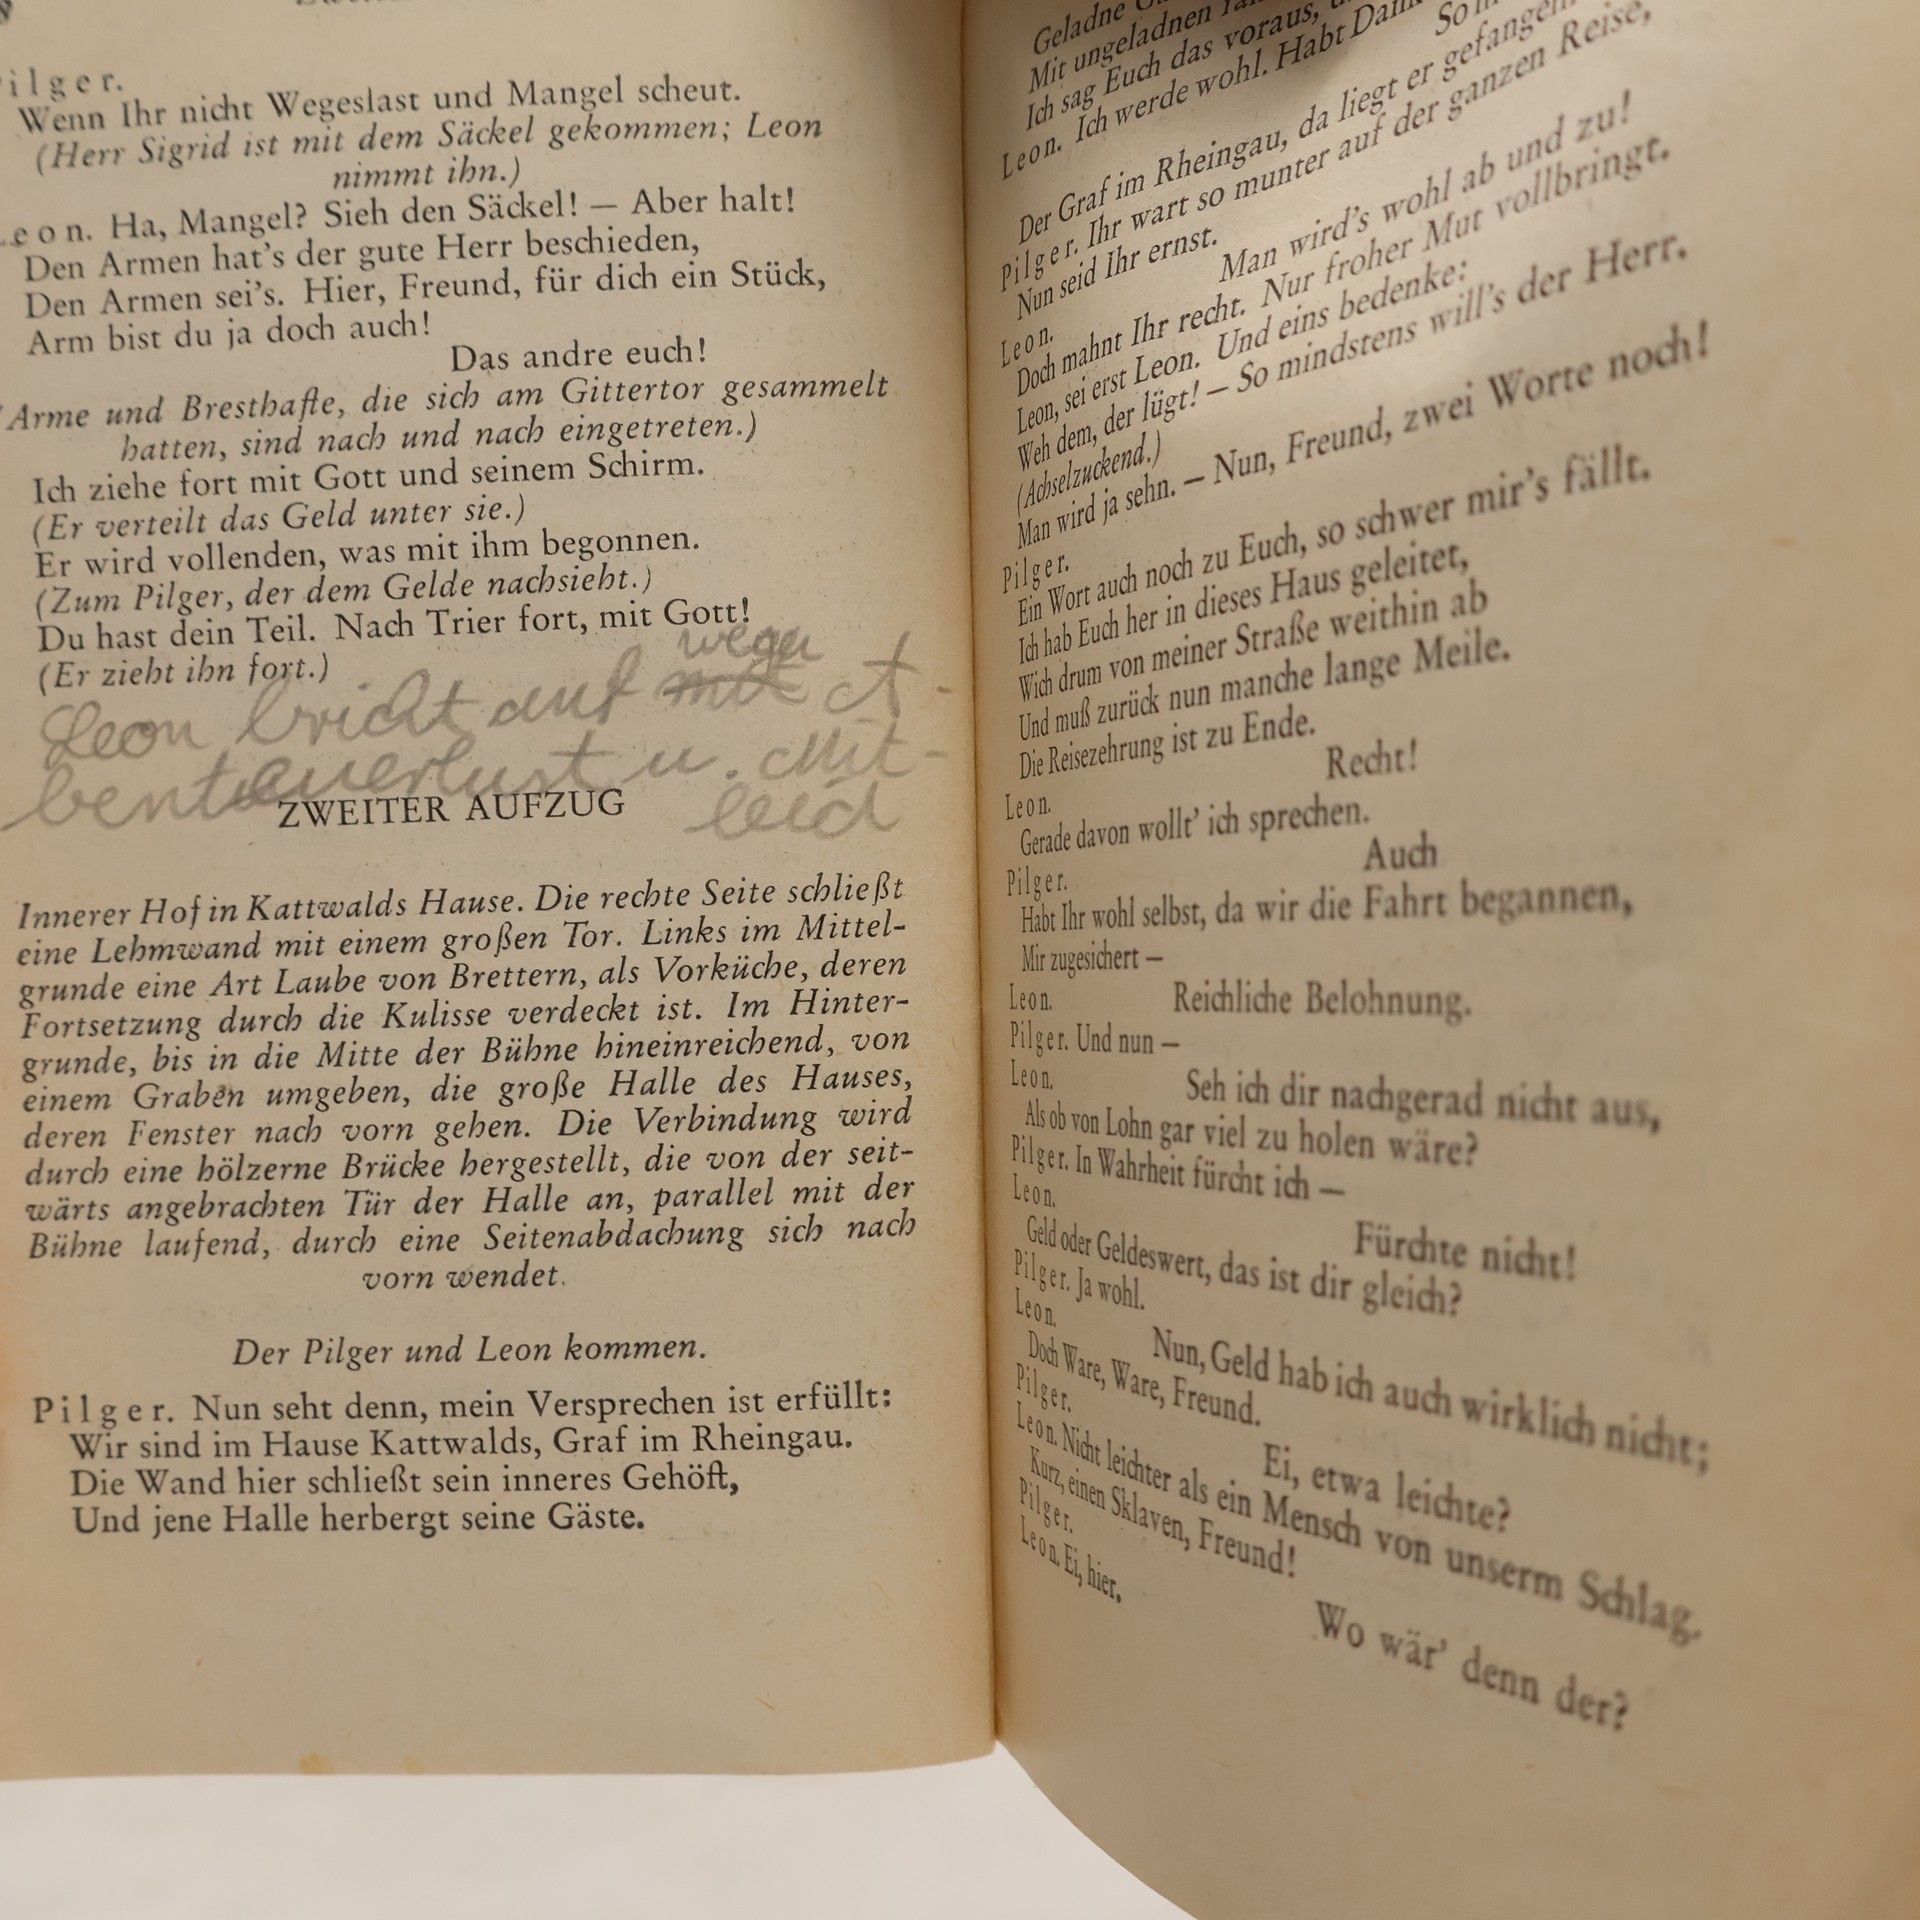 Pilger.
Wenn Ihr nicht Wegeslast und Mangel scheut.
(Herr Sigrid ist mit dem Säckel gekommen; Leon
nimmt ihn.)
Leon. Ha, Mangel? Sieh den Säckel! — Aber halt!
Den Armen hat's der gute Herr beschieden,
Den Armen sei's. Hier, Freund, für dich ein Stück,
Arm bist du ja doch auch!
Das andre euch!
(Arme und Bresthafte, die sich am Gittertor gesammelt
hatten, sind nach und nach eingetreten.)
Ich ziehe fort mit Gott und seinem Schirm.
(Er verteilt das Geld unter sie.)
Er wird vollenden, was mit ihm begonnen.
(Zum Pilger, der dem Gelde nachsieht.)
Du hast dein Teil. Nach Trier fort, mit Gott!
(Er zieht ihn fort.)
wegen
Leon bricht auf mit A-
benteuerlust u. Mit-
leid
ZWEITER AUFZUG
Innerer Hof in Kattwalds Hause. Die rechte Seite schließt
eine Lehmwand mit einem großen Tor. Links im Mittel-
grunde eine Art Laube von Brettern, als Vorküche, deren
Fortsetzung durch die Kulisse verdeckt ist. Im Hinter-
grunde, bis in die Mitte der Bühne hineinreichend, von
einem Graben umgeben, die große Halle des Hauses,
deren Fenster nach vorn gehen. Die Verbindung wird
durch eine hölzerne Brücke hergestellt, die von der seit-
wärts angebrachten Tür der Halle an, parallel mit der
Bühne laufend, durch eine Seitenabdachung sich nach
vorn wendet.
Der Pilger und Leon kommen.
Pilger. Nun seht denn, mein Versprechen ist erfüllt:
Wir sind im Hause Kattwalds, Graf im Rheingau.
Die Wand hier schließt sein inneres Gehöft,
Und jene Halle herbergt seine Gäste.
Geladne
Mit ungeladnen
Ich sag Euch das voraus,
Leon. Ich werde wohl. Habt Dank
So
Der Graf im Rheingau, da liegt er gefangen
Pilger. Ihr wart so munter auf der ganzen Reise,
Nun seid Ihr ernst.
Leon. Man wird's wohl ab und zu!
Doch mahnt Ihr recht. Nur froher Mut vollbringt.
Leon, sei erst Leon. Und eins bedenke:
Weh dem, der lügt! — So mindstens will's der Herr.
(Achselzuckend.)
Man wird ja sehn. — Nun, Freund, zwei Worte noch!
Pilger.
Ein Wort auch noch zu Euch, so schwer mir's fällt.
Ich hab Euch her in dieses Haus geleitet,
Wich drum von meiner Straße weithin ab
Und muß zurück nun manche lange Meile.
Die Reisezehrung ist zu Ende.
Leon. Recht!
Gerade davon wollt' ich sprechen.
Pilger. Auch
Habt Ihr wohl selbst, da wir die Fahrt begannen,
Mir zugesichert —
Leon. Reichliche Belohnung.
Pilger. Und nun —
Leon. Seh ich dir nachgerad nicht aus,
Als ob von Lohn gar viel zu holen wäre?
Pilger. In Wahrheit fürcht ich —
Leon. Fürchte nicht!
Geld oder Geldeswert, das ist dir gleich?
Pilger. Ja wohl.
Leon. Nun, Geld hab ich auch wirklich nicht;
Doch Ware, Ware, Freund.
Pilger. Ei, etwa leichte?
Leon. Nicht leichter als ein Mensch von unserm Schlag.
Kurz, einen Sklaven, Freund!
Pilger. Wo wär' denn der?
Leon. Ei, hier.